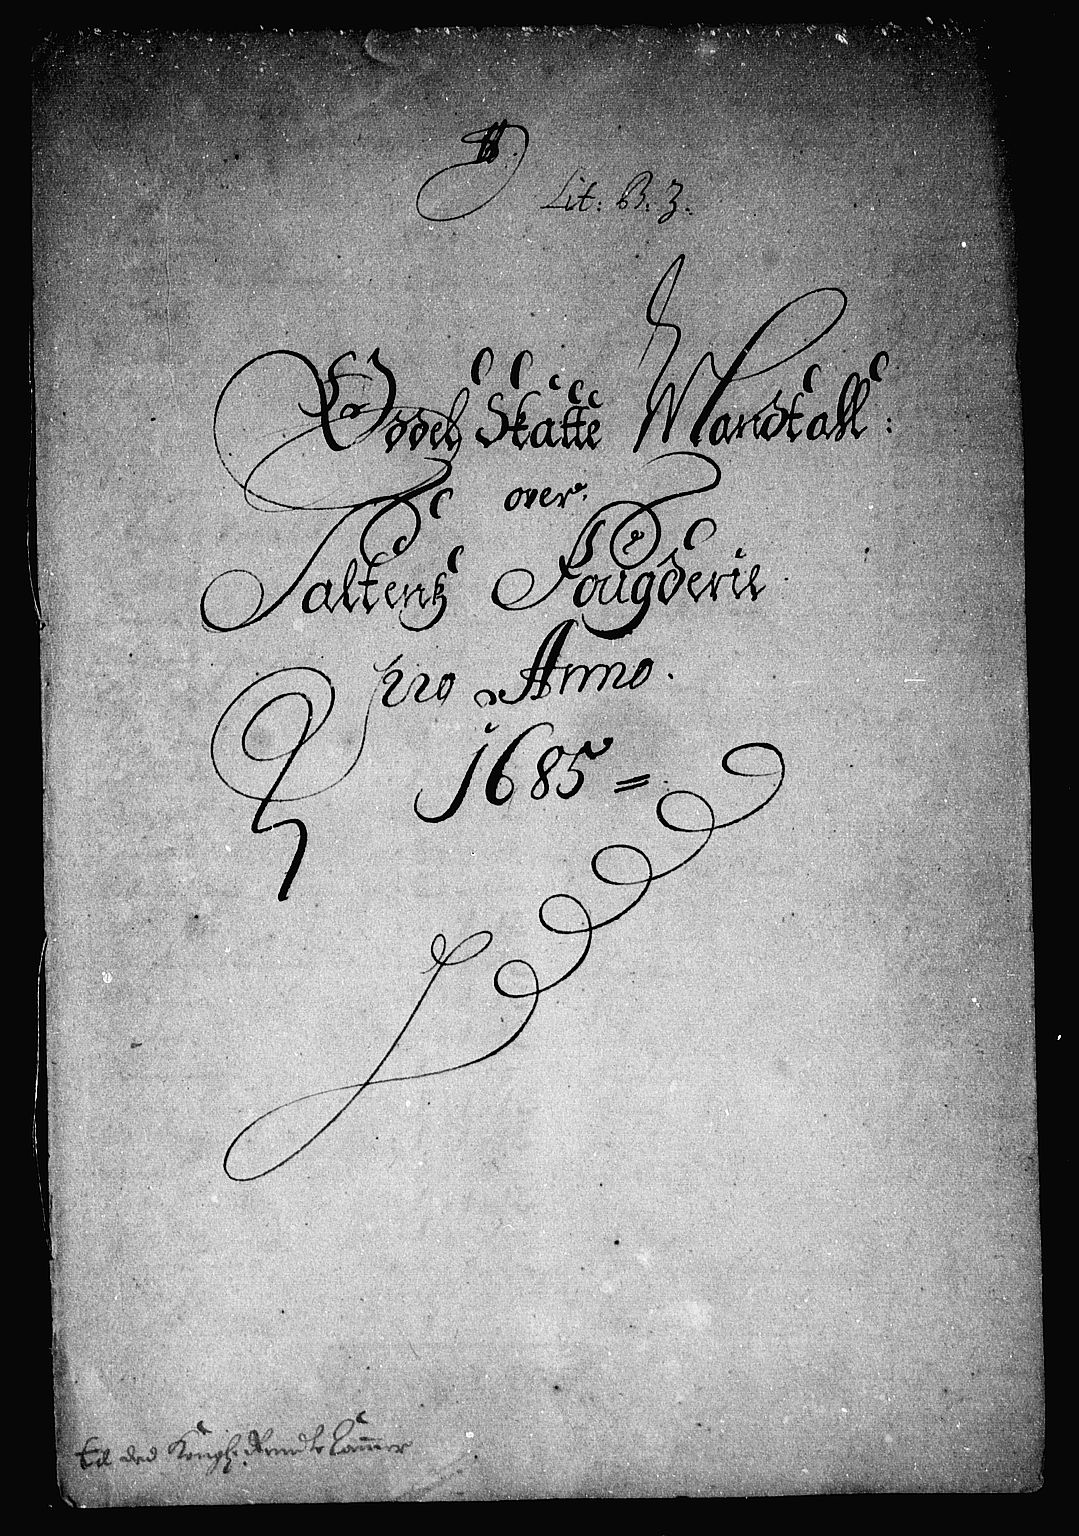 Lit: B: 3:
Oddel Skatte Mandtall:
over
Saltens Fougderie
pro Anno.
1685 =
Til ded Kongl: Rendte Cammer